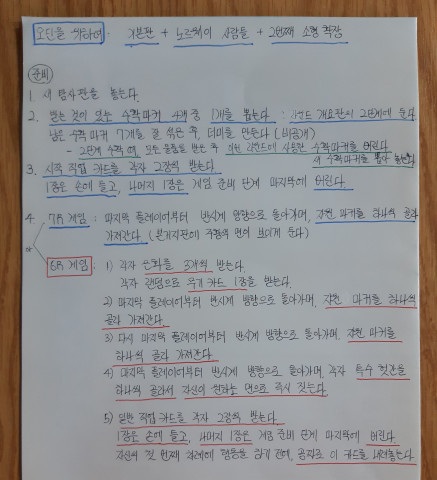 오딘을 위하여 : 기본판 + 노르웨이 사람들 + 2번째 소형 확장
(준비)
1. 새 탐사판을 놓는다.
2. 받는 것이 있는 수확마커 4개 중 1개를 뽑는다. : 라운드 개요판의 2단계에 둔다
남은 수확 마커 7개를 잘 섞은 후, 더미를 만든다 (비공개)
- 2단계 수확 때, 모든 물품을 받은 후 이번 라운드에 사용한 수확마커를 버린다.
새 수확마커를 뽑아 놓는다
3. 시작 직업 카드를 각자 2장씩 받는다.
1장은 손에 들고, 나머지 1장은 게임 준비 단계 마지막에 버린다.
4. 7R 게임 : 마지막 플레이어부터 반시계 방향으로 돌아가며, 자원 마커를 하나씩 골라
가져간다. (본거지판에 주황색 면이 보이게 둔다)
* 6R 게임 : 1) 각자 은화를 3개씩 받는다.
각자 랜덤으로 무기 카드 1장을 받는다.
2) 마지막 플레이어부터 반시계 방향으로 돌아가며, 자원 마커를 하나씩
골라 가져간다.
3) 다시 마지막 플레이어부터 반시계 방향으로 돌아가며, 자원 마커를
하나씩 골라 가져간다.
4) 마지막 플레이어부터 반시계 방향으로 돌아가며, 각자 특수 헛간을
하나씩 골라서 자신이 원하는 면으로 즉시 짓는다.
5) 일반 직업카드를 각자 2장씩 받는다.
1장은 손에 들고, 나머지 1장은 게임 준비 단계 마지막에 버린다.
자신의 첫 번째 차례에 행동을 하기 전에, 공짜로 이 카드를 내려놓는다.